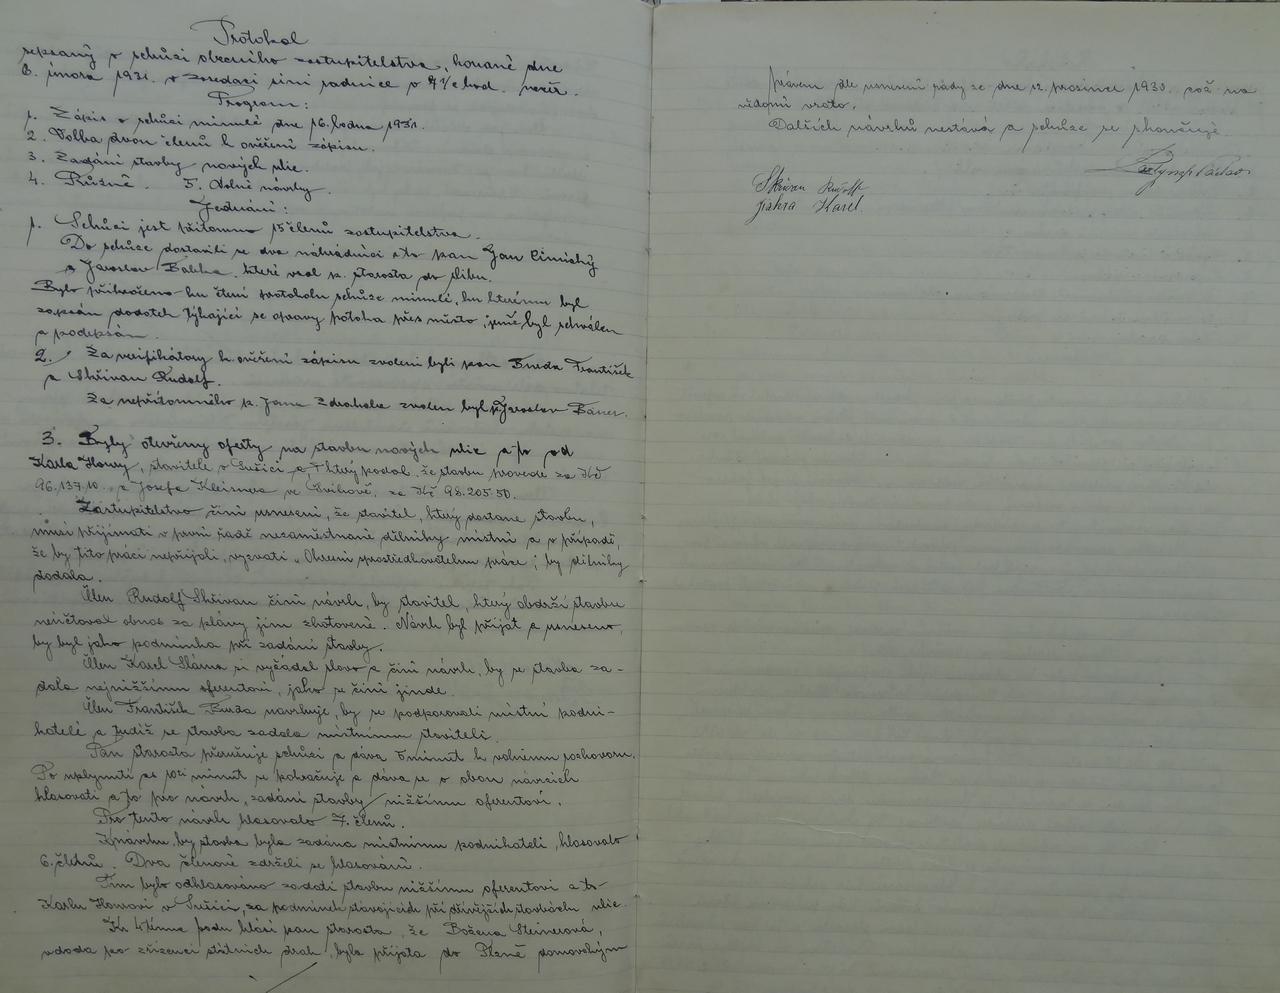 Protokol
sepsaný o schůzi obecního zastupitelstva, konané dne
6. února 1931. v zasedací síni radnice o 7½ hod. večer.
Program:
1. Zápis o schůzi minulé dne 16. ledna 1931.
2. Volba dvou členů k ověření zápisu.
3. Zadání stavby nových ulic.
4. Různé. 5. Volné návrhy.
Jednání:
1. Schůzi jest přítomno 15 členů zastupitelstva.
Do schůze dostavili se dva náhradníci a to pan Jan
a Jaroslav, které vzal p. starosta do slibu.
Bylo přikročeno ku čtení protokolu schůze minulé, ku kterému byl
zapsán dodatek týkající se opravy potoka přes město, jenž byl schválen
a podepsán.
2. Za verifikátory k ověření zápisu zvoleni byli pan František
a Skřivan Rudolf.
Za nepřítomného p. Jana Zdrahala zvolen byl p. Jaroslav
3. Byly otevřeny oferty na stavbu nových ulic a to od
Karla Houry, stavitele v Sušici, který podal, že stavbu provede za Kč
96.137.10 a Josefa ve, za Kč 98.205.50.
Zastupitelstvo činí usnesení, že stavitel, který dostane stavbu,
musí přijímati v první řadě nezaměstnané dělníky místní a v případě,
že by tito práci nepřijali, vyzvati „Okresní zprostředkovatelnu práce", by dělníky
dodala.
Člen Rudolf Skřivan činí návrh, by stavitel, který obdrží stavbu
neúčtoval obnos za plány jím zhotovené. Návrh byl přijat a usneseno,
by byl jako podmínka při zadání stavby.
Člen Karel Sláma si vyžádal slovo a činí návrh, by se stavba za-
dala nejnižšímu oferentovi, jako se činí jinde.
Člen František navrhuje, by se podporovali místní podni-
katelé a tudíž se stavba zadala místnímu staviteli.
Pan starosta přerušuje schůzi a dává 5 minut k volnému rozhovoru.
Po uplynutí se pokračuje a dává se o obou návrzích
hlasovati a to pro návrh, zadání stavby nižšímu oferentovi.
Pro tento návrh hlasovalo 7. členů.
K návrhu, by stavba byla zadána místnímu podnikateli, hlasovalo
6. členů. Dva členové zdrželi se hlasování.
Tím bylo odhlasováno zadati stavbu nižšímu oferentovi a to
Karlu Hourovi v Sušici, za podmínek stávajících při dřívějších stavbách ulic.
Ku 4tému bodu hlásí pan starosta, že Božena Steinerová,
vdova po zřízenci státních drah, byla přijata do Plzně domovským
právem dle usnesení rady ze dne 12. prosince 1930. což na
vědomí vzato.
Dalších návrhů nestává a schůze se skončuje.
Skřivan Rudolf
Karel